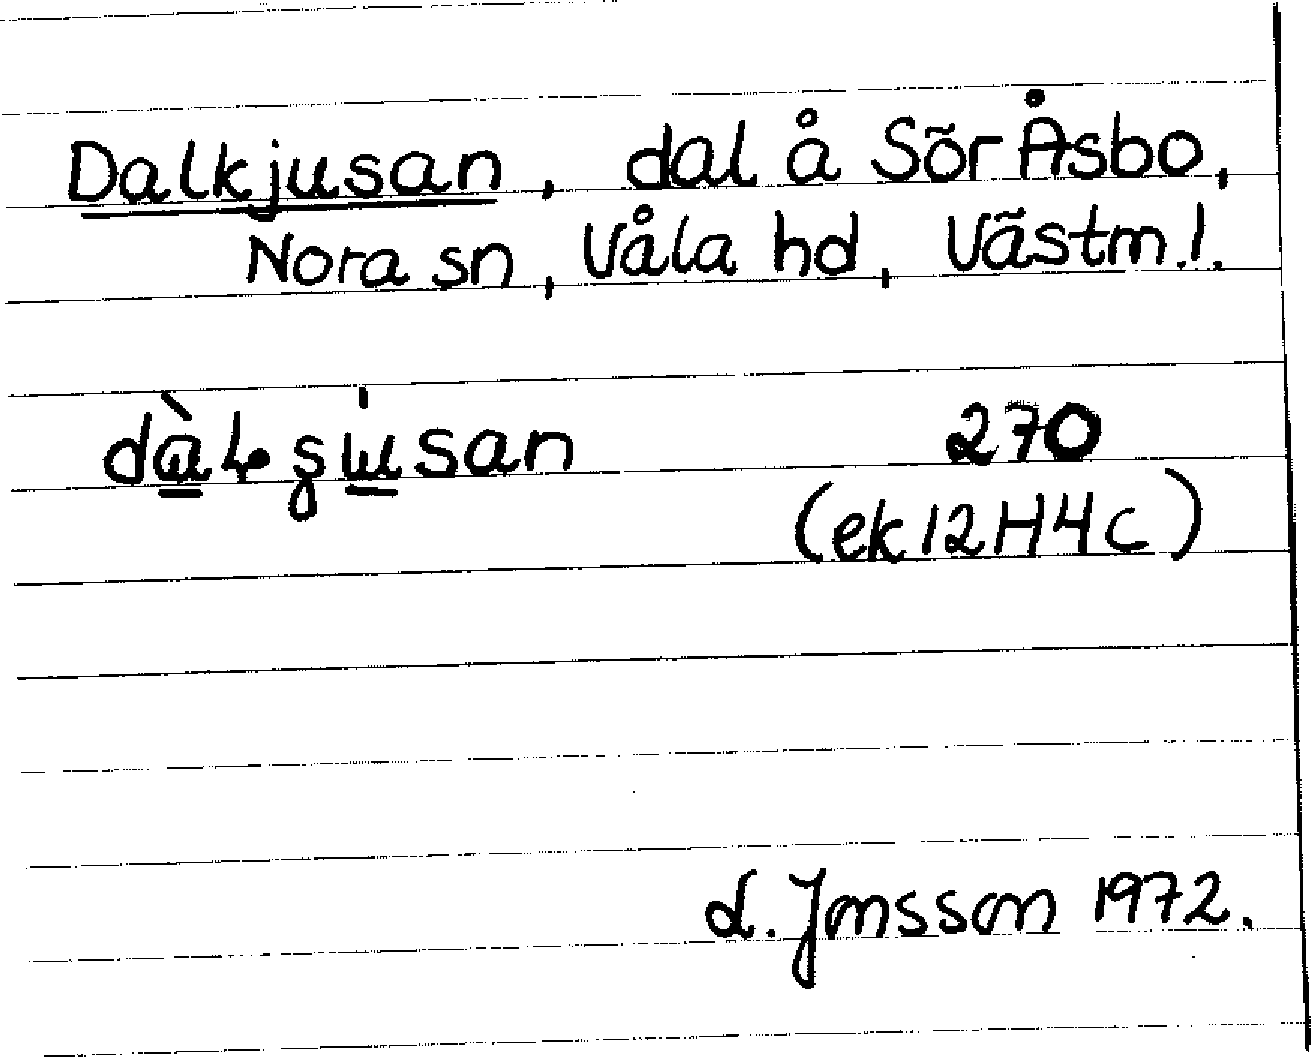 Dalkjusan, dal å Sör Åsbo,
Nora sn, Våla hd, Västm.l.
270
(ek 12H4c)
L. Jonsson 1972.